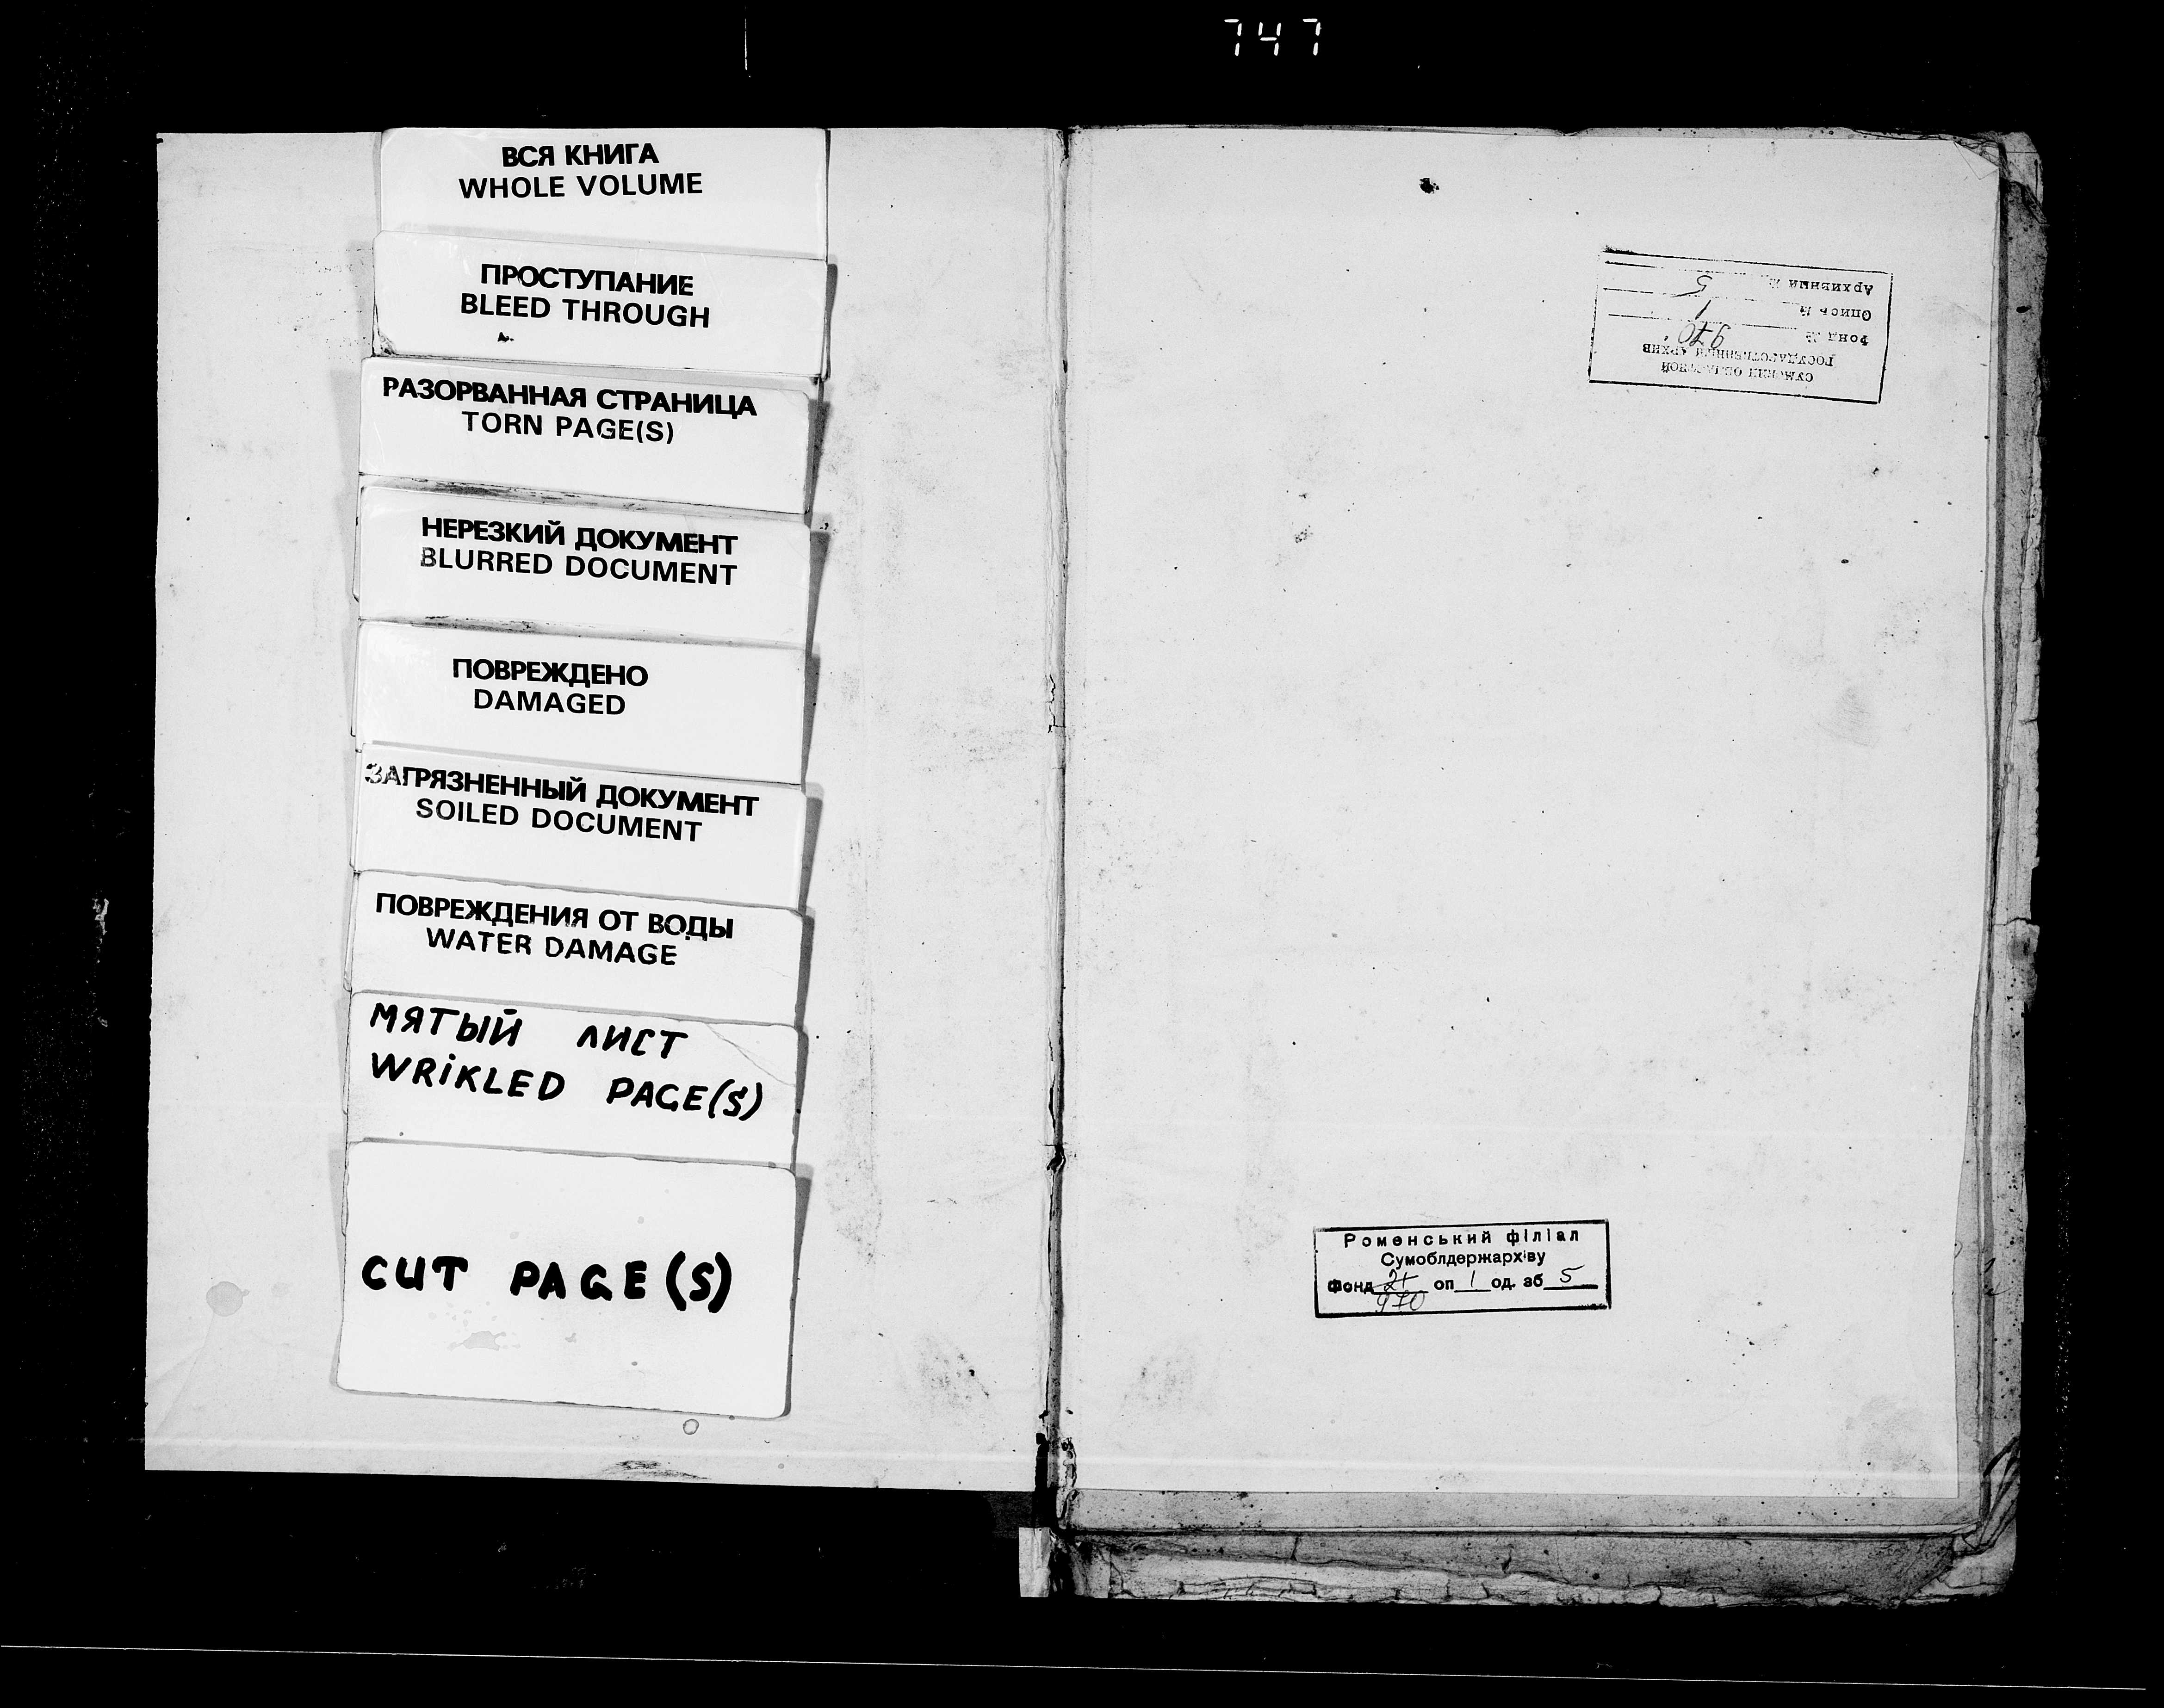 747
ВСЯ КНИГА
WHOLE VOLUME
ПРОСТУПАНИЕ
BLEED THROUGH
РАЗОРВАННАЯ СТРАНИЦА
TORN PAGE(S)
НЕРЕЗКИЙ ДОКУМЕНТ
BLURRED DOCUMENT
ПОВРЕЖДЕНО
DAMAGED
ЗАГРЯЗНЕННЫЙ ДОКУМЕНТ
SOILED DOCUMENT
ПОВРЕЖДЕНИЯ ОТ ВОДЫ
WATER DAMAGE
МЯТЫЙ ЛИСТ
WRIKLED PAGE(S)
CUT PAGE(S)
СУМСКИЙ ОБЛАСТНОЙ
ГОСУДАРСТВЕННЫЙ АРХИВ
Фонд № 970
Опись № 1
Архивный № 5
Роменський філіал
Сумоблдержархіву
Фонд 21 оп 1 од. зб 5
970